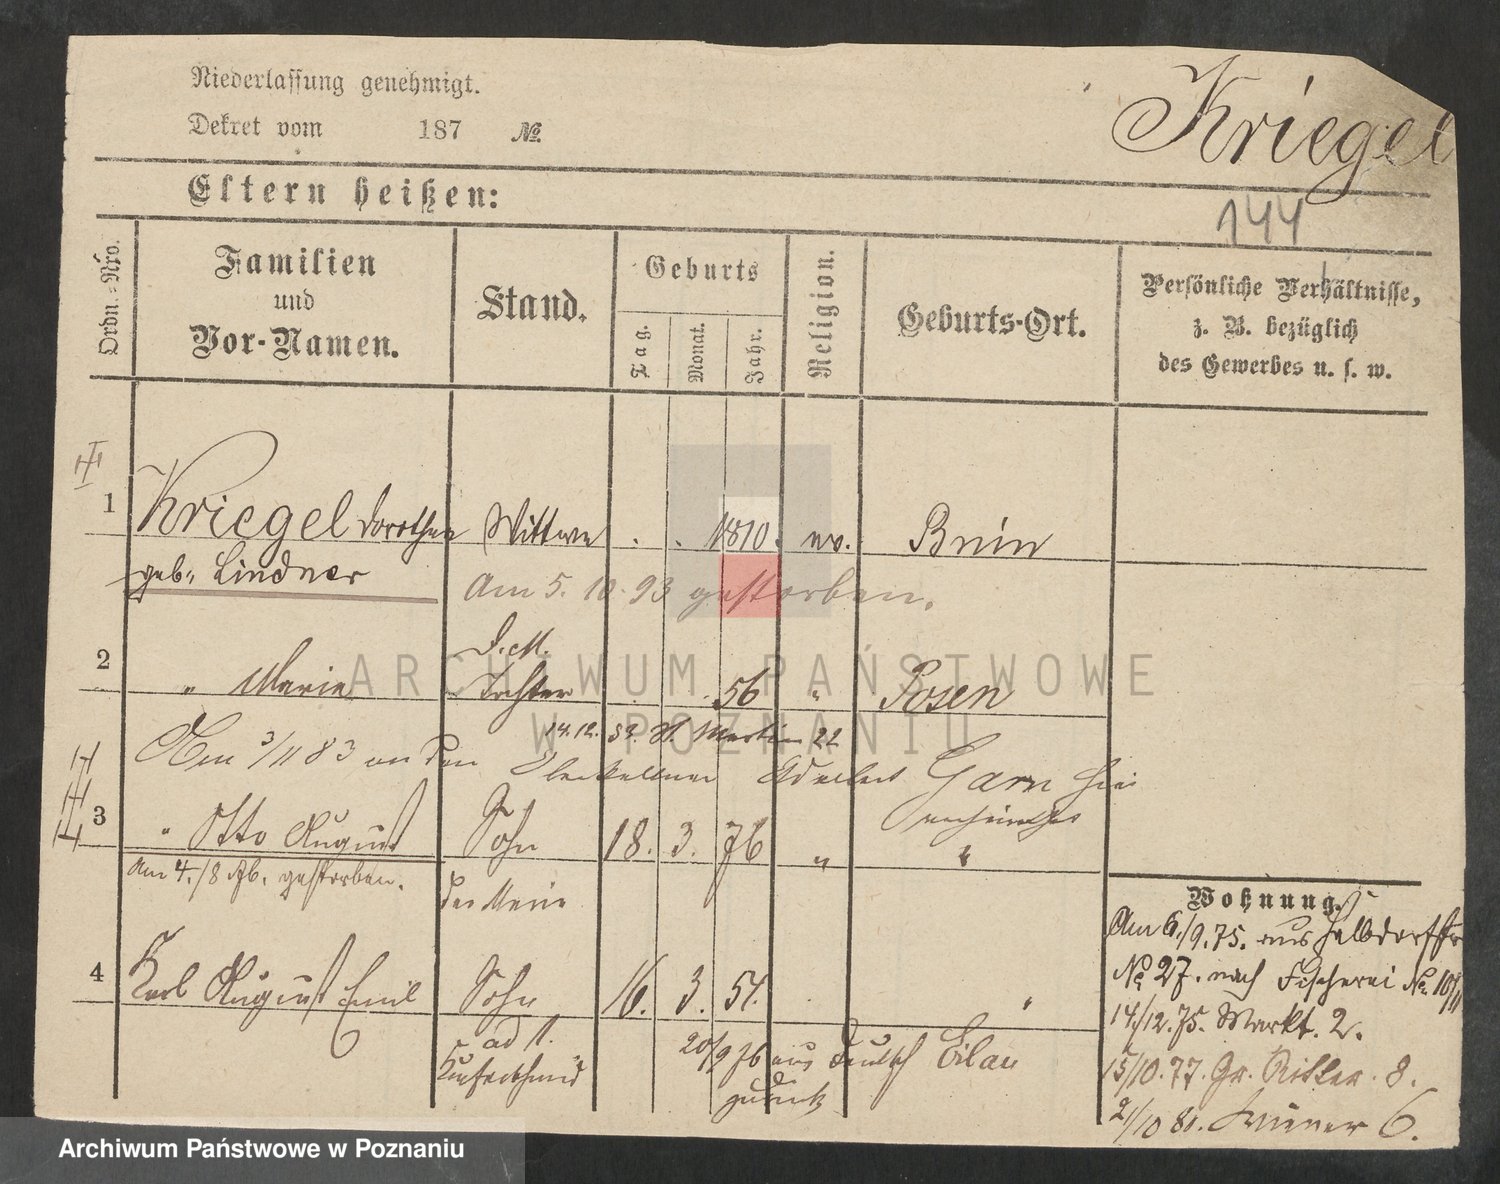 Niederlassung genehmigt.
Dekret vom 187 №.
Kriegel
Eltern heißen:
144
Ordn.-Nro.
Familien
und
Vor-Namen.
Stand.
Geburts
Tag.
Monat.
Jahr.
Religion.
Geburts-Ort.
Persönliche Verhältnisse,
z. B. bezüglich
des Gewerbes u. s. w.
1 Kriegel Dorothea Wittwe . . 1810. ev. Bnin
geb. Lindner
Am 5. 10. 93 gestorben.
2 " Marie Tochter . 56 " Posen
14.12. 59. St. Martin 22
Am 3/11 83 an den Oberkellner Garn hier
3 " Otto August Sohn 18. 3. 76 " "
Am 4./8 76. gestorben.
der Marie
4 Karl August Emil Sohn 16. 3. 54. "
ad 1.
20/9 76 aus Deutsch Eilau
zurück
Wohnung.
Am 6./9. 75. aus Halbdorfstr
№ 27. nach Fischerei № 10/11
14/12. 75. Markt. 2.
15/10. 77. Gr. Ritter. 8.
21/10 81. 6.
ARCHIWUM PAŃSTWOWE
W POZNANIU
Archiwum Państwowe w Poznaniu